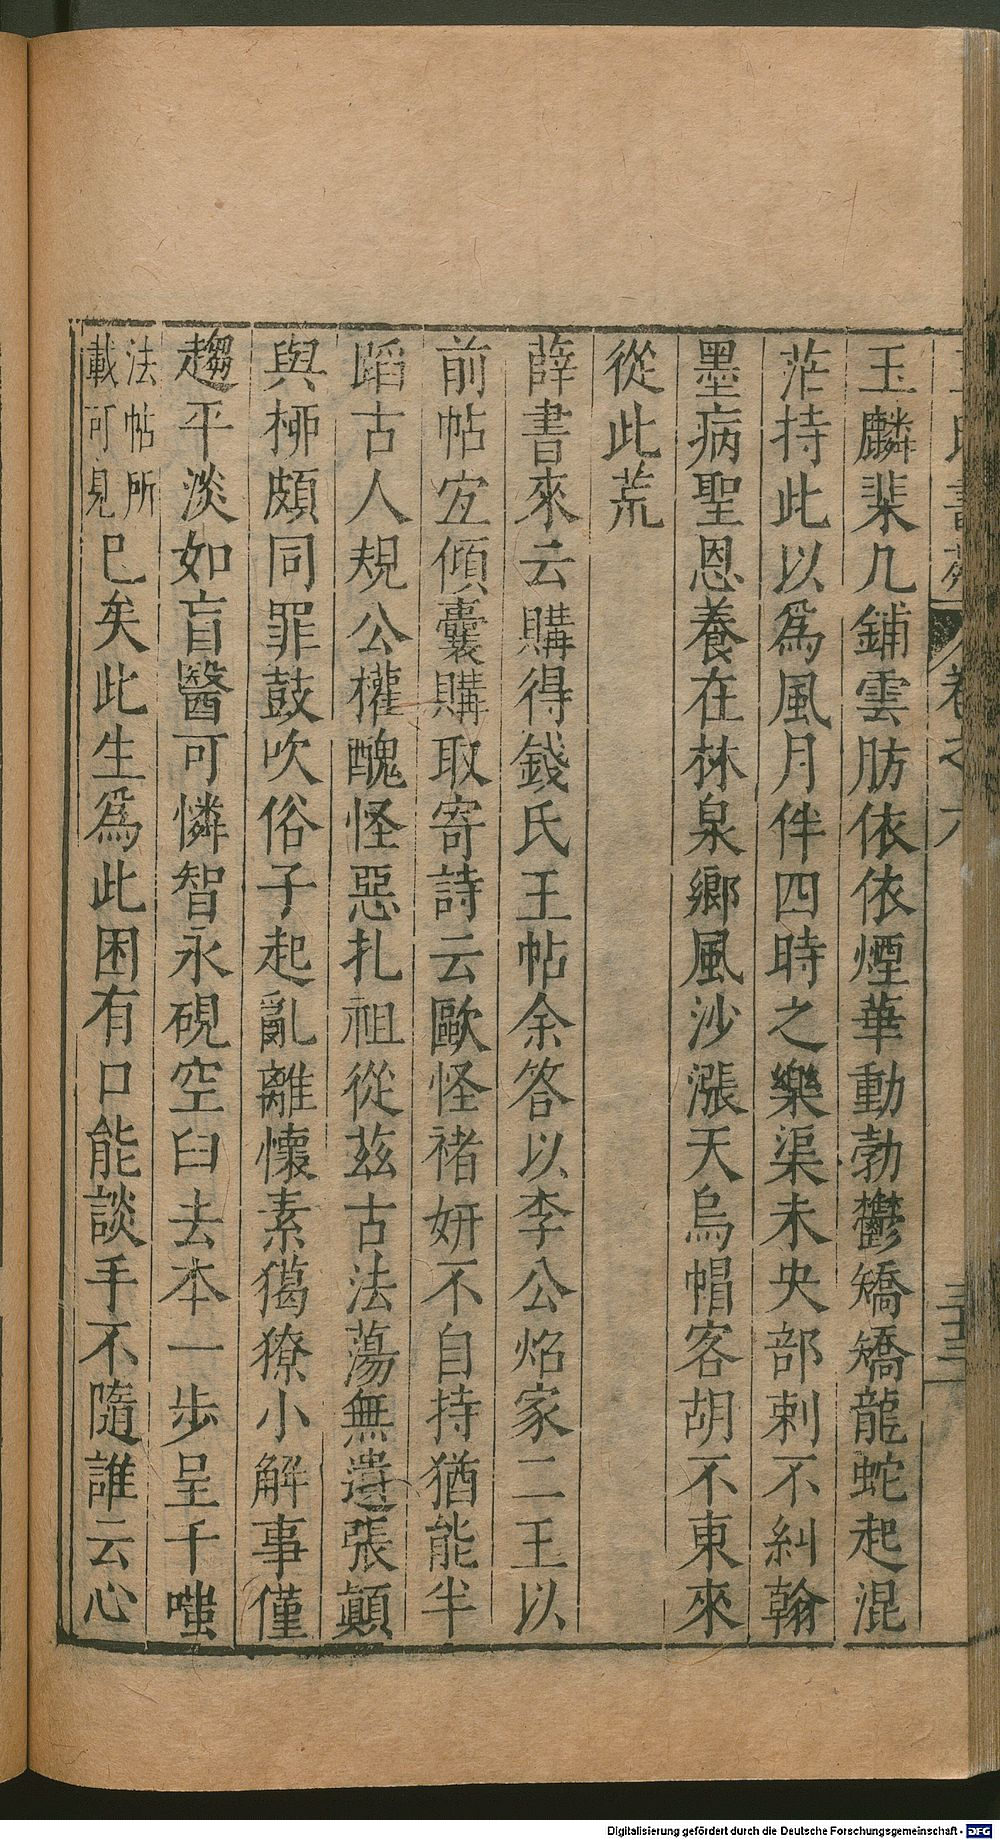 王氏書苑 卷之六 三十三
玉麟棐几鋪雲肪依依煙華動勃鬱矯矯龍蛇起混
茫持此以爲風月伴四時之樂渠未央部刺不糾翰
墨病聖恩養在林泉鄉風沙漲天烏帽客胡不東來
從此荒
薛書來云購得錢氏王帖余答以李公炤家二王以
前帖宜傾囊購取寄詩云歐怪褚妍不自持猶能半
蹈古人規公權醜怪惡扎祖從茲古法蕩無遺張顛
與柳頗同罪鼓吹俗子起亂離懷素獦獠小解事僅
趨平淡如盲醫可憐智永硯空臼去本一步呈千嗤
法帖所
載可見
已矣此生爲此困有口能談手不隨誰云心
Digitalisierung gefördert durch die Deutsche Forschungsgemeinschaft - DFG